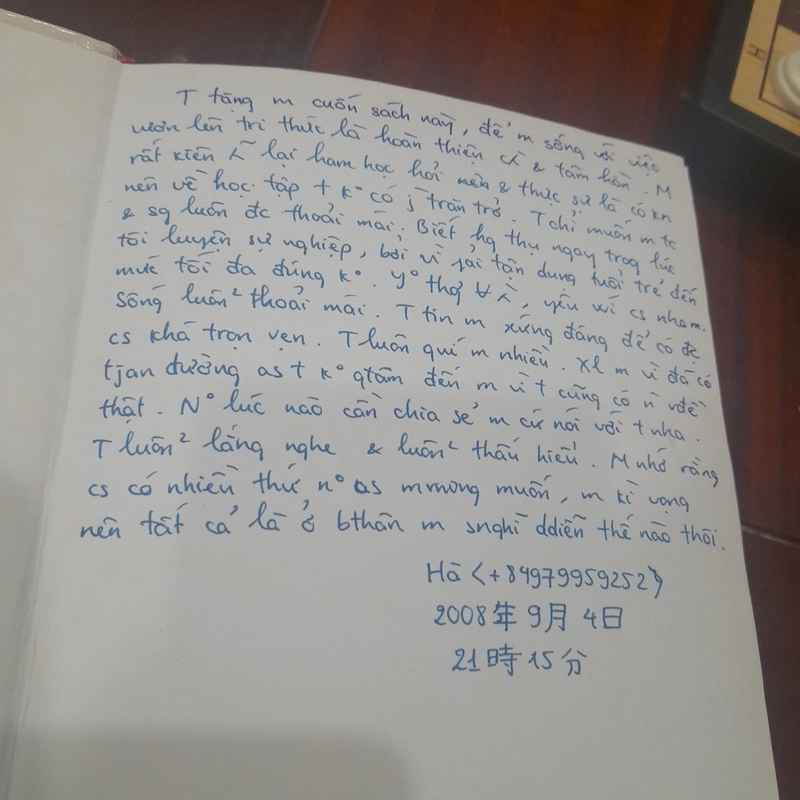 T tặng m cuốn sách này, để m sống với việc
vươn lên tri thức là hoàn thiện & tâm hồn. M
rất kiên lại ham học hỏi nên & thực sự là có kn
nên về học tập t k° có j trăn trở. T chỉ muốn m tc
& sg luôn đc thoải mái. Biết hg thụ ngay trog lúc
tôi luyện sự nghiệp, bởi vì fải tận dụng tuổi trẻ đến
mức tối đa đúng k°. y° thơ, yêu vì cs nham.
Sống luôn² thoải mái. T tin m xứng đáng để có đc
cs khá trọn vẹn. T luôn quí m nhiều. Xl m vì đã có
tjan đường as t k° qtâm đến m vì t cũng có n vđề
thật. N° lúc nào cần chia sẻ m cứ nói với t nha.
T luôn² lắng nghe & luôn² thấu hiểu. M nhớ rằng
cs có nhiều thứ n° as mmong muốn, m kì vọng
nên tất cả là ở bthân m snghĩ ddiễn thế nào thôi.
Hà <+84979959252>
2008年 9月 4日
21時 15分